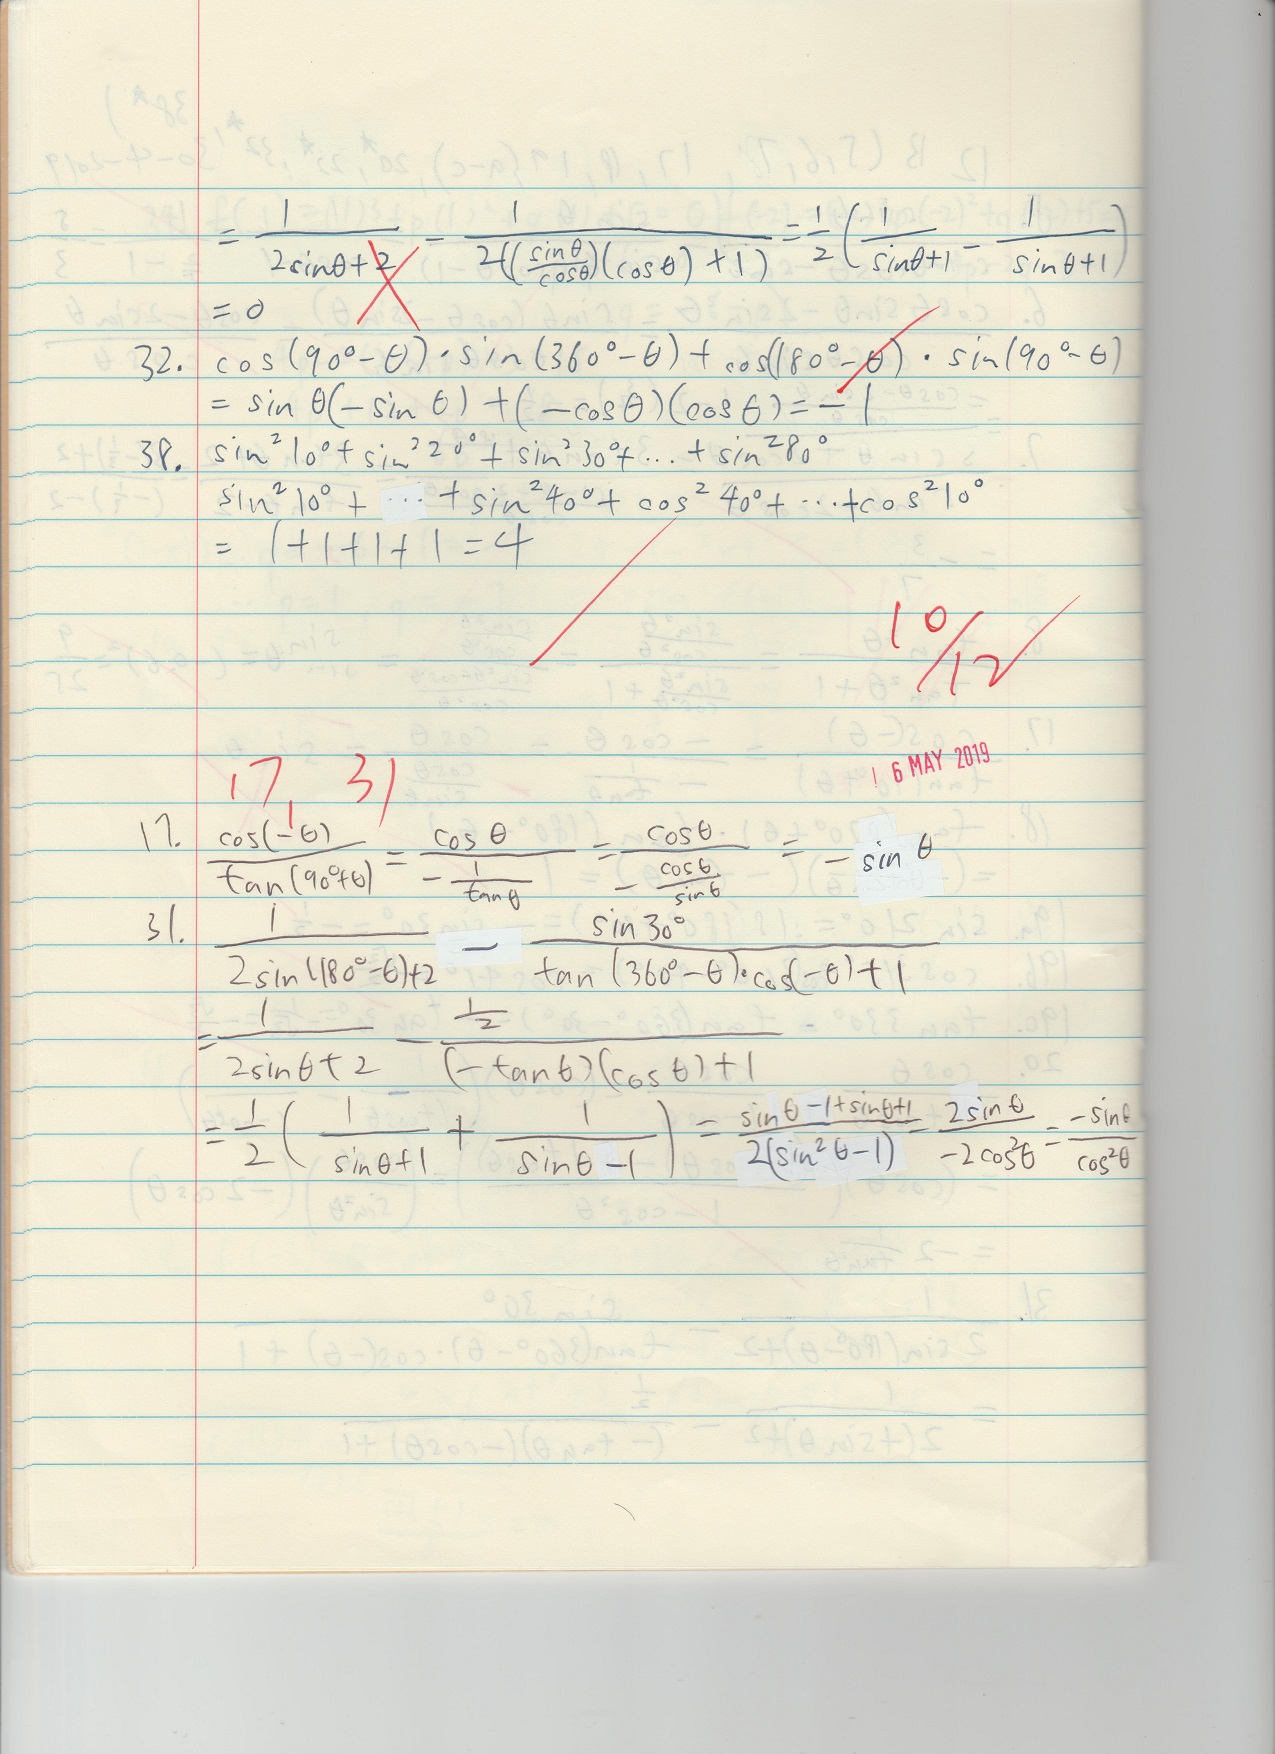 = 1/(2sinθ+2) - 1/(2((sinθ/cosθ)(cosθ)+1)) = 1/2 (1/(sinθ+1) - 1/(sinθ+1))
= 0
32. cos(90°-θ)·sin(360°-θ)+cos(180°-θ)·sin(90°-θ)
= sinθ(-sinθ)+(-cosθ)(cosθ)=-1
38. sin²10°+sin²20°+sin²30°+...+sin²80°
sin²10°+...+sin²40°+cos²40°+...+cos²10°
= 1+1+1+1=4
10/12
16 MAY 2019
17, 31
17. cos(-θ)/tan(90°+θ) = cosθ/(-1/tanθ) = cosθ/(-cosθ/sinθ) = -sinθ
31. 1/(2sin(180°-θ)+2) - sin30°/(tan(360°-θ)·cos(-θ)+1)
= 1/(2sinθ+2) - (1/2)/((-tanθ)(cosθ)+1)
= 1/2 (1/(sinθ+1) + 1/(sinθ-1)) = (sinθ-1+sinθ+1)/(2(sin²θ-1)) = 2sinθ/(-2cos²θ) = -sinθ/cos²θ